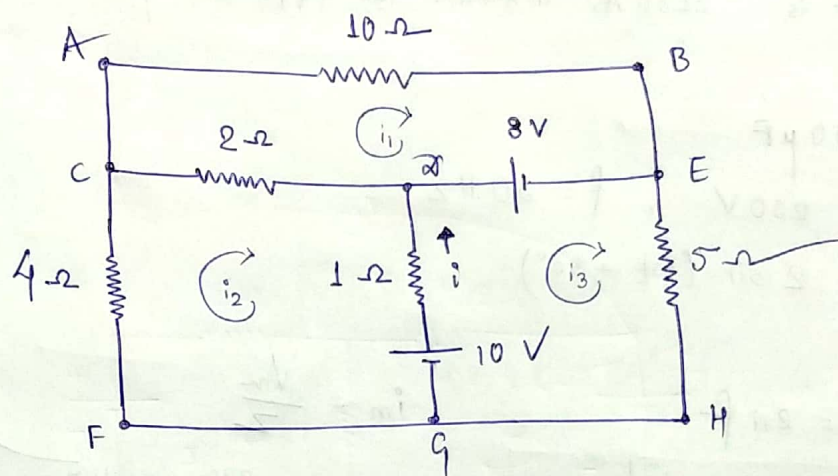 10 Ω
A
B
i₁
2 Ω
8 V
C
D
E
4 Ω
i₂
1 Ω
i
i₃
5 Ω
10 V
F
G
H